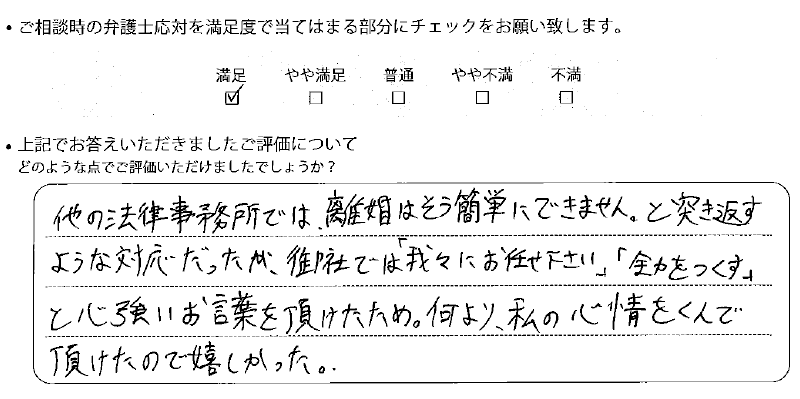 ・ご相談時の弁護士応対を満足度で当てはまる部分にチェックをお願い致します。
満足 やや満足 普通 やや不満 不満
☑ ☐ ☐ ☐ ☐
・上記でお答えいただきましたご評価について
どのような点でご評価いただけましたでしょうか？
他の法律事務所では、離婚はそう簡単にできません。と突き返す
ような対応だったが、御社では「我々にお任せ下さい」「全力をつくす」
と心強いお言葉を頂けたため。何より、私の心情をくんで
頂けたので嬉しかった。